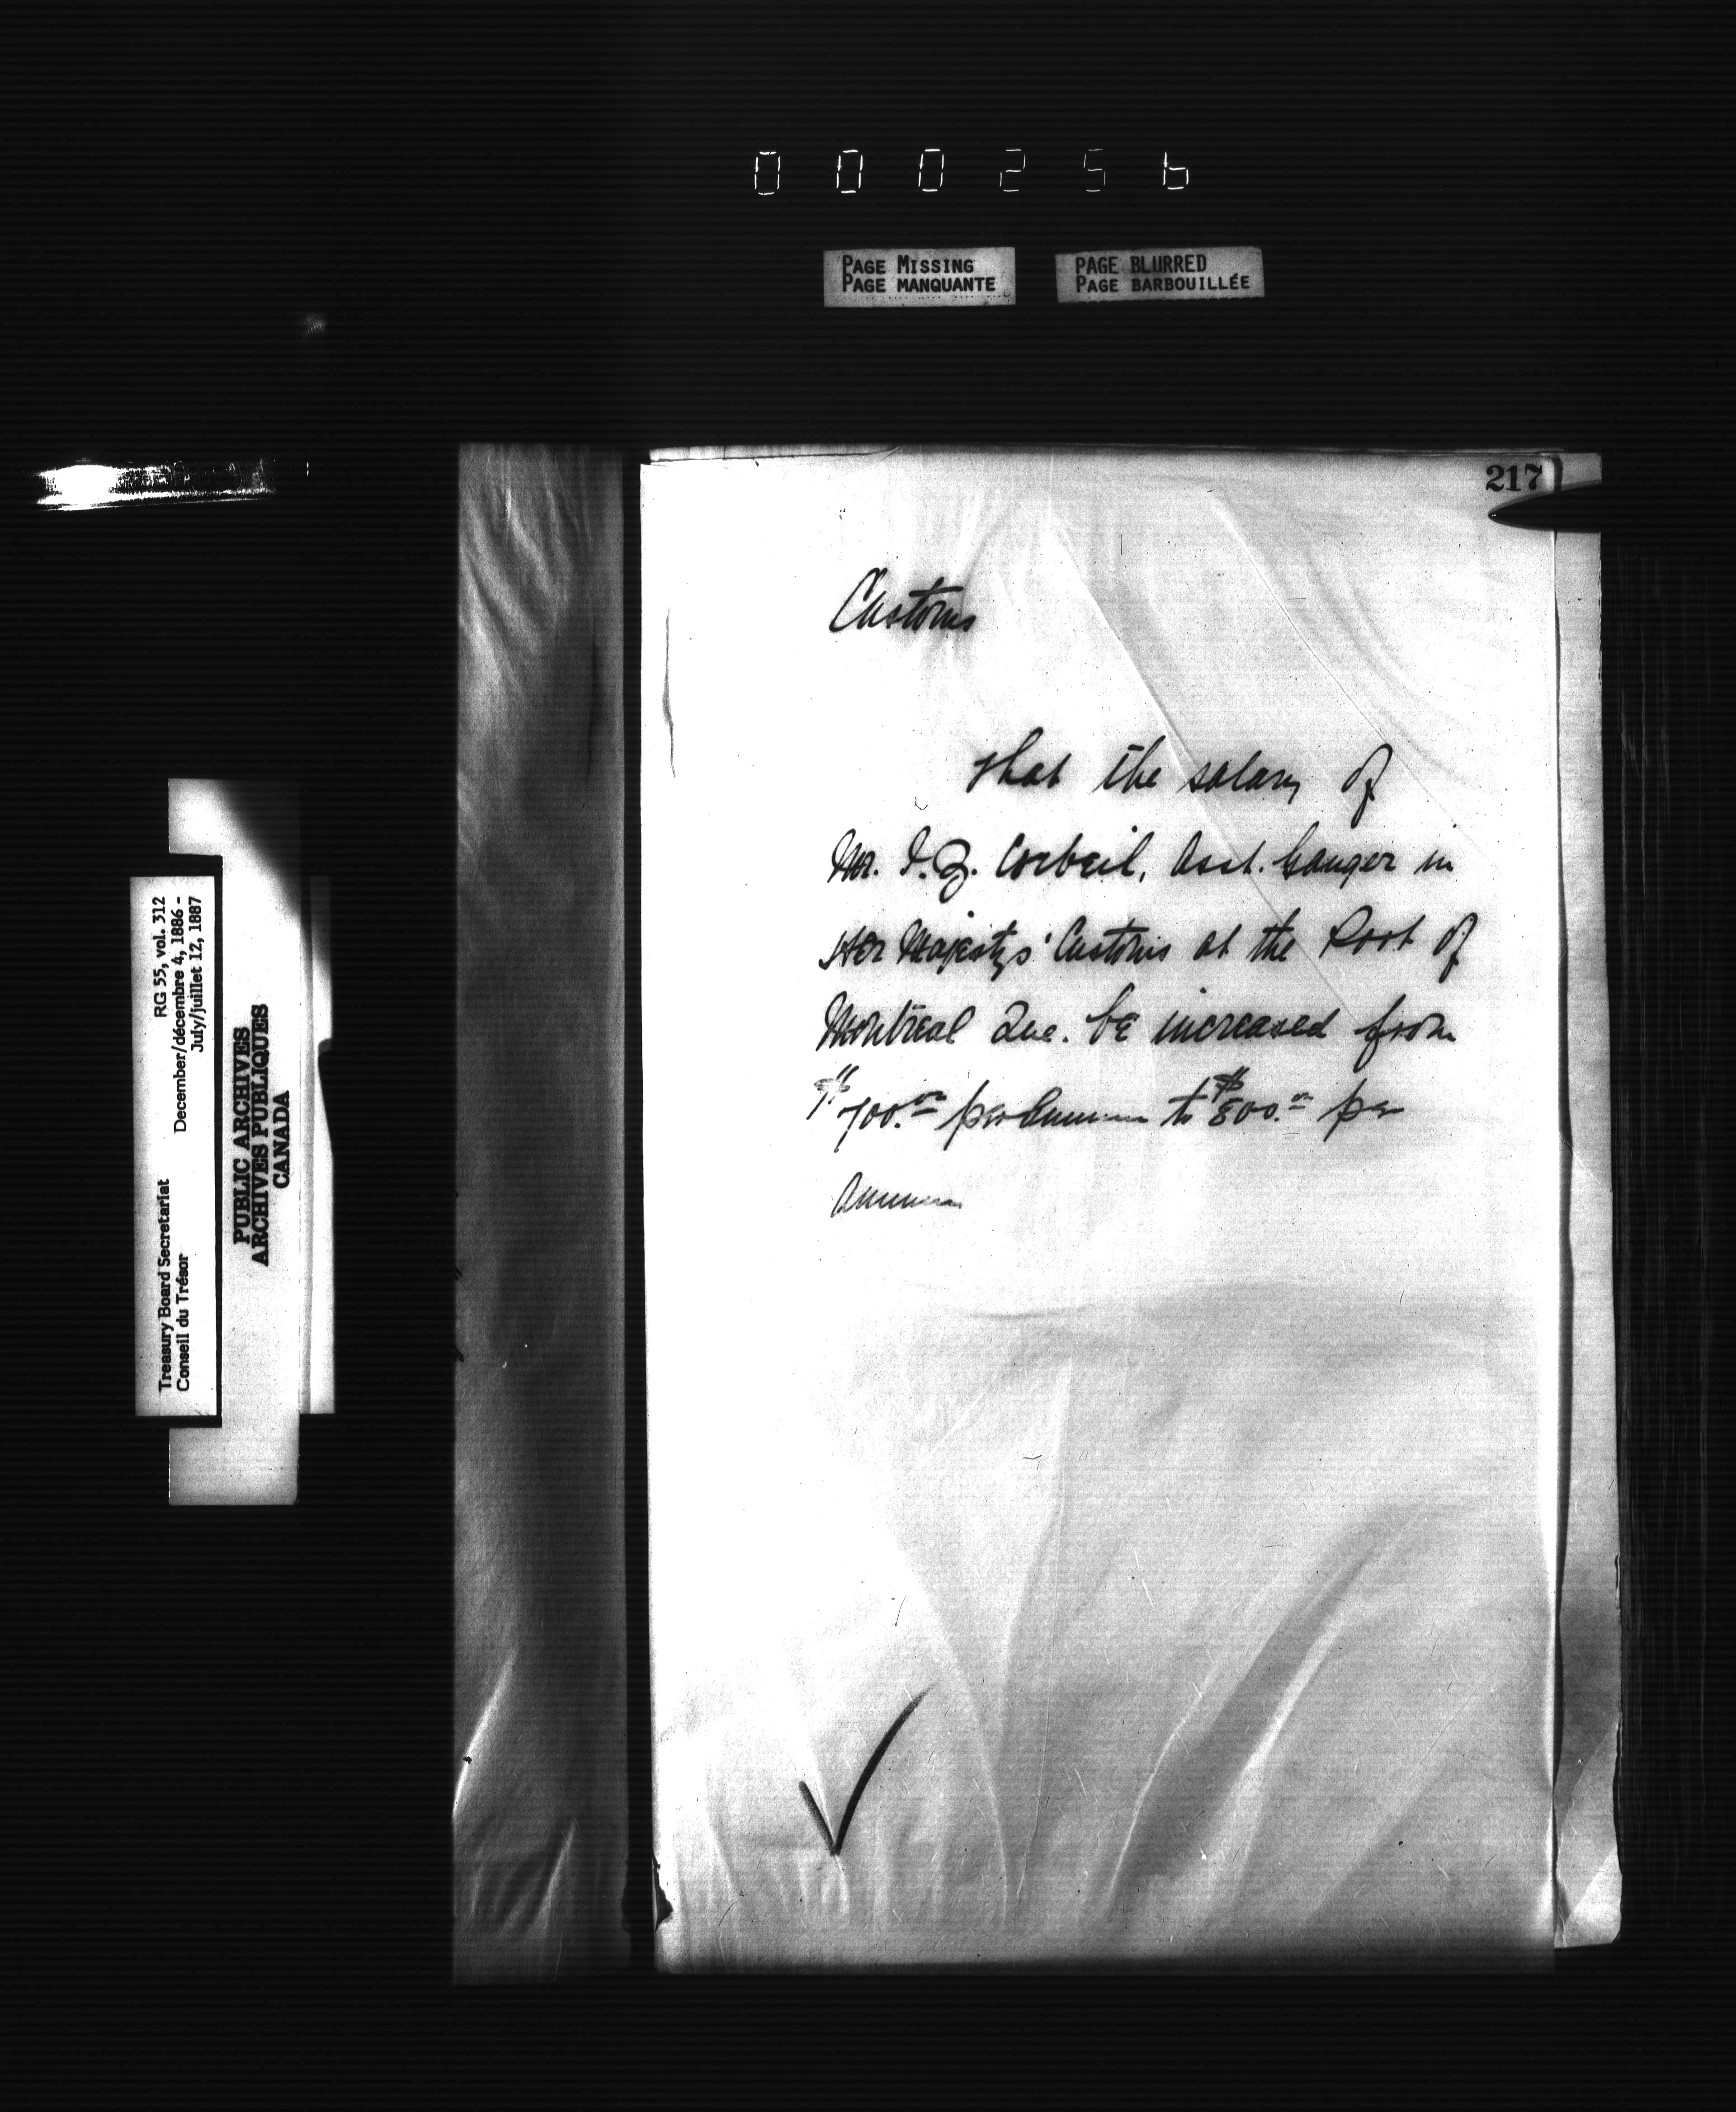 000256
PAGE MISSING
PAGE MANQUANTE
PAGE BLURRED
PAGE BARBOUILLÉE
217
Customs
That the salary of
Mr. I.Z. Corbeil, Asst. Gauger in
Her Majesty's Customs at the Port of
Montreal Que. be increased from
$700.00 per Annum to $800.00 per
Annum
Treasury Board Secretariat RG 55, vol. 312
Conseil du Trésor December/décembre 4, 1886 -
July/juillet 12, 1887
PUBLIC ARCHIVES
ARCHIVES PUBLIQUES
CANADA